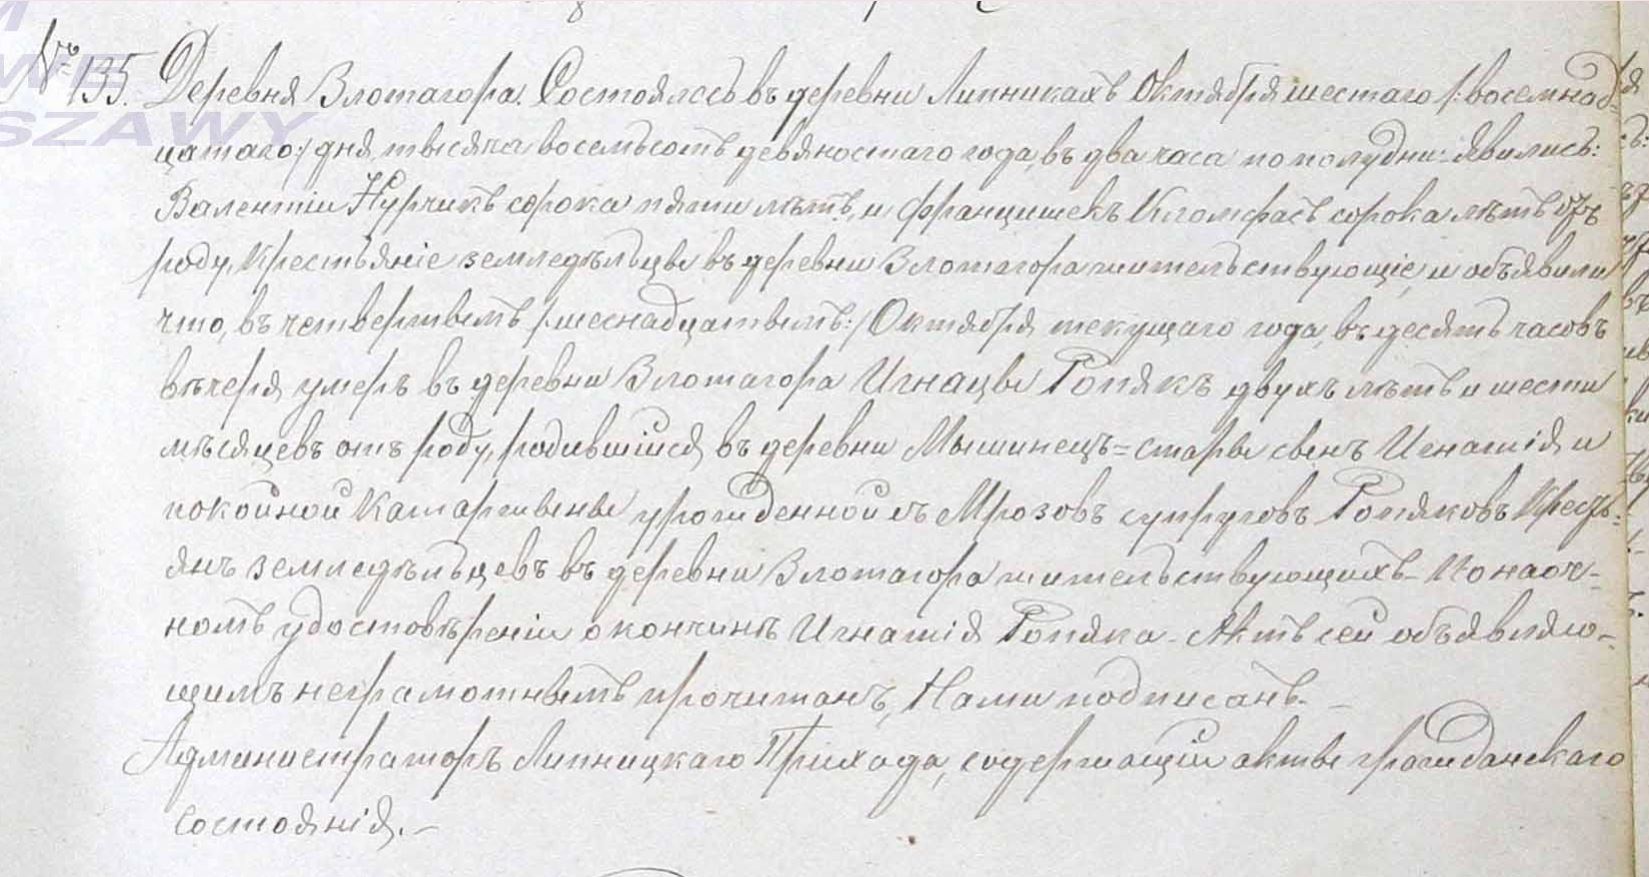 № 135. Деревня Злотагора. Состоялось въ деревни Липникахъ Октября шестаго /:восемнад=
цатаго:/ дня, тысяча восемьсотъ девяностаго года, въ два часа пополудни: Явились:
Валентіи Нурчикъ сорока пяти лѣтъ, и Францишекъ сорока лѣтъ отъ
роду, Крестьяніе земледѣльцы въ деревни Злотагора жительствующіе, и объявили
что, въ четвертымъ /:шеснадцатымъ:/ Октября текущаго года, въ десять часовъ
вѣчеря умеръ въ деревни Злотагора Игнацы Ропякъ двухъ лѣтъ и шести
мѣсяцевъ отъ роду, родившійся въ деревни Мышинецъ=Стары сынъ Игнатія и
покойной Катаржыны урожденной съ Мрозовъ супруговъ Ропяковъ Кресть=
янъ земледѣльцевъ въ деревни Злотагора жительствующихъ. По наоч-
номъ удостовѣреніи о кончинѣ Игнатія Ропяка. Актъ сей объявляю-
щимъ неграмотнымъ прочитанъ, Нами подписанъ.
Администраторъ Липницкаго Прихода, содержащіи акты гражданскаго
состоянія.
SZAWY